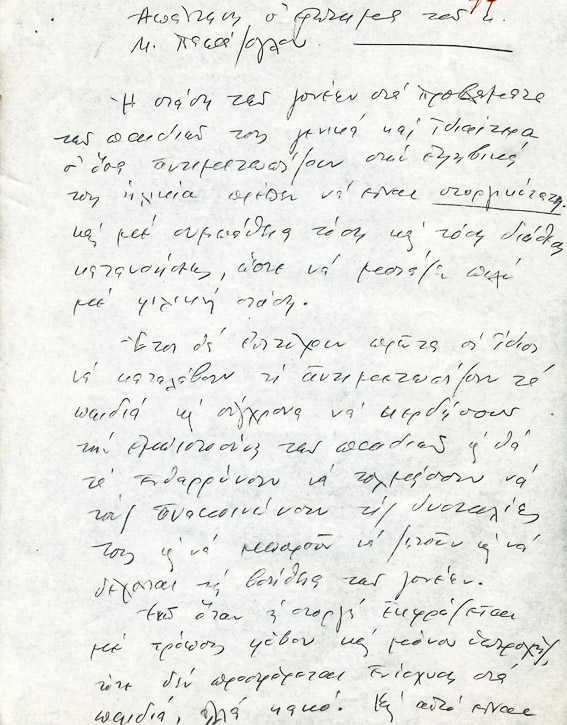 Ἀπάντηση σ' ἐρώτημα τοῦ κ.
Μ. 
Ἡ στάση τῶν γονέων στά προβλήματα
τῶν παιδιῶν τους γενικά καί ἰδιαίτερα
σ' ὅσα ἀντιμετωπίζουν στήν ἐφηβική
τους ἡλικία πρέπει νά εἶναι στοργικότατη
καί μέ συμπάθεια τόση καί τόση διάθεση
κατανοήσεως, ὥστε νά μοιάζει πολύ
μέ φιλική στάση.
Ἔτσι θά ἐπιτύχουν πρῶτα οἱ ἴδιοι
νά καταλάβουν τί ἀντιμετωπίζουν τά
παιδιά κι' σύγχρονα νά κερδήσουν
τήν ἐμπιστοσύνη τῶν παιδιῶν κι' θά
τά ἐνθαρρύνουν νά τολμήσουν νά
τούς ἀνακοινώνουν τίς δυσκολίες
τους κι' νά μποροῦν νά ζητοῦν κι' νά
δέχονται τή βοήθεια τῶν γονέων.
Ἐνῶ ὅταν ἡ στοργή ἐκφράζεται
μέ τρόπους φόβου καί μόνον
τότε δέν προσφέρεται ἐνίσχυση στά
παιδιά, ἀλλά κακό. Κι' αὐτό εἶναι